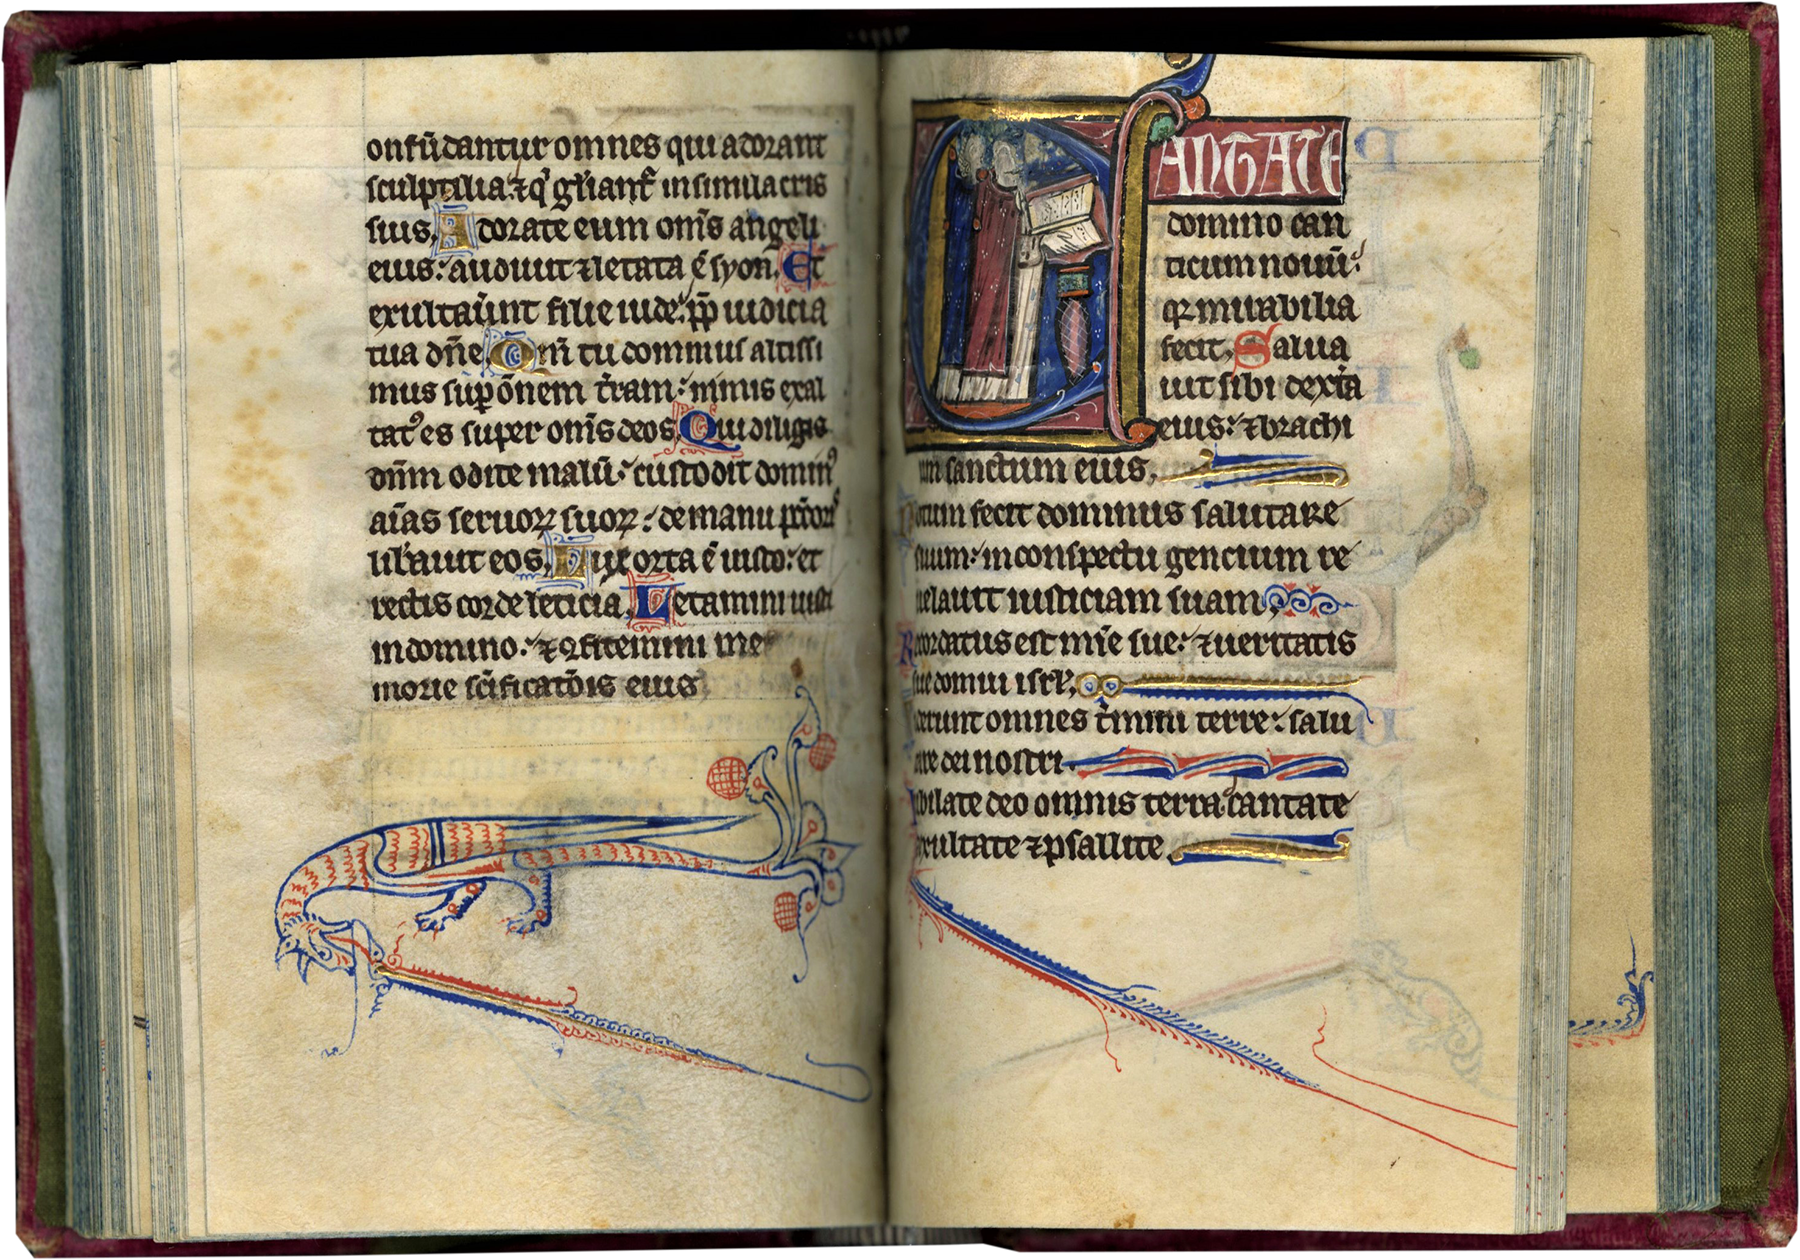 onfūdantur omnes qui adorant
sculptilia: ⁊ q̇ gl̄iant̄ in simulacris
suis. Adorate eum om̄s angeli
eius: audiuit ⁊ letata ē syon. Et
exultauūnt filie iude: pp̄ iudicia
tua dn̄e. Qm̄ tu dominus altissi
mus sup̄ ōnem t̄ram: nimis exal
tatꝰ es super om̄s deos. Qui diligis
dn̄m odite malū: custodit dominꝰ
aīas seruoꝝ suoꝝ: de manu
lib̄auit eos. Lux orta ē iusto: et
rectis corde leticia. Letamini iusti
in domino: ⁊ ꝯfitemini me
morie sc̄ificatōis eius
CANTATE
domino can
ticum nouū:
qꝛ mirabilia
fecit. Salua
uit sibi dext̄a
eius: ⁊ brachi
um sanctum eius.
Notum fecit dominus salutare
suum: in conspectu gencium re
uelauit iusticiam suam.
Recordatus est mīe sue: ⁊ ueritatis
sue domui isrl̄.
Viderunt omnes t̄mini terre: salu
tare dei nostri.
Iubilate deo omnis terra: cantate
exultate ⁊ psallite.